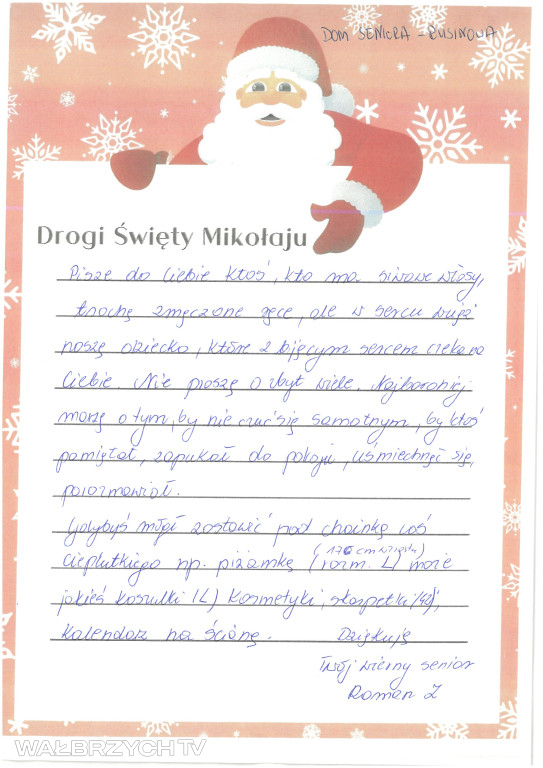 DOM SENIORA - RUSINOWA
Drogi Święty Mikołaju
Pisze do Ciebie ktoś, kto ma siwawe włosy,
trochę zmęczone ręce, ale w sercu wciąż
noszę dziecko, które z bijącym sercem czeka na
Ciebie. Nie proszę o zbyt wiele. Najbardziej
marzę o tym, by nie czuć się samotnym, by ktoś
pamiętał, zapukał do pokoju, uśmiechnął się,
porozmawiał.
Gdybyś mógł zostawić pod choinką coś
(176 cm wzrostu)
cieplutkiego np. piżamkę (rozm. L) może
jakieś koszulki (L) kosmetyki, skarpetki (42),
Kalendarz na ścianę. Dziękuję
Twój wierny senior
Roman Z
WAŁBRZYCH TV